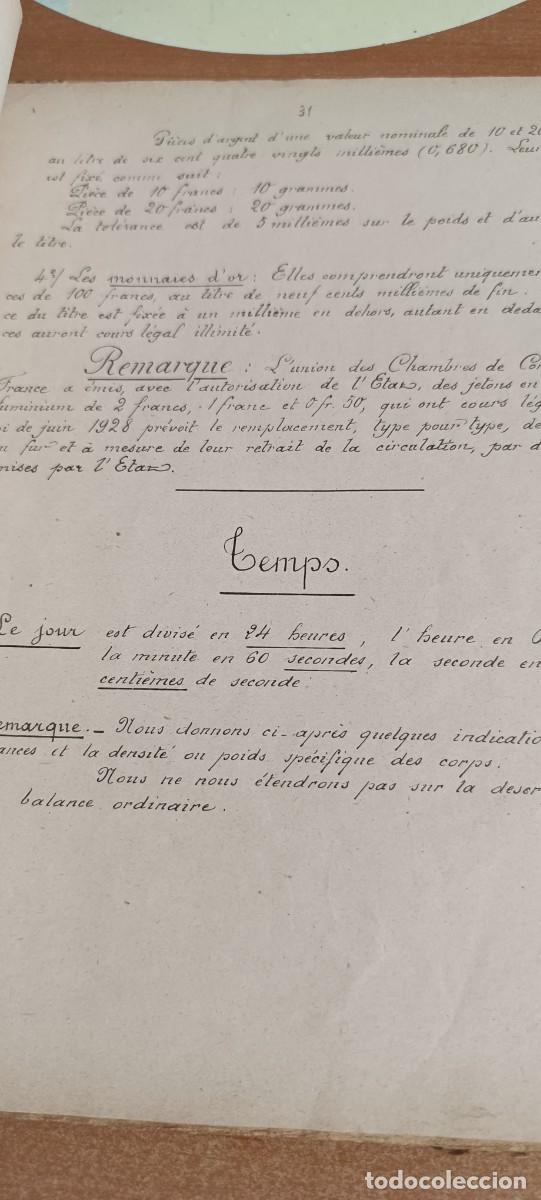 31
Pièces d'argent d'une valeur nominale de 10 et 20
au titre de six cent quatre vingts millièmes (0,680). Leur
est fixé comme suit :
Pièce de 10 francs : 10 grammes.
Pièce de 20 francs : 20 grammes.
La tolérance est de 5 millièmes sur le poids et d'au
le titre.
4º/ Les monnaies d'or : Elles comprendront uniquemen
ces de 100 francs, au titre de neuf cents millièmes de fin.
ce du titre est fixée à un millième en dehors, autant en deda
ces auront cours légal illimité.
Remarque : L'union des Chambres de Co
France a émis, avec l'autorisation de l'Etat, des jetons en
luminium de 2 francs, 1 franc et 0 fr. 50, qui ont cours lég
oi de juin 1928 prévoit le remplacement, type pour type, de
u fur et à mesure de leur retrait de la circulation, par d
mises par l'Etat.
Temps.
Le jour est divisé en 24 heures, l'heure en
la minute en 60 secondes, la seconde en
centièmes de seconde.
emarque. _ Nous donnons ci-après quelques indicatio
ances et la densité ou poids spécifique des corps.
Nous ne nous étendrons pas sur la descr
balance ordinaire.
todocoleccion